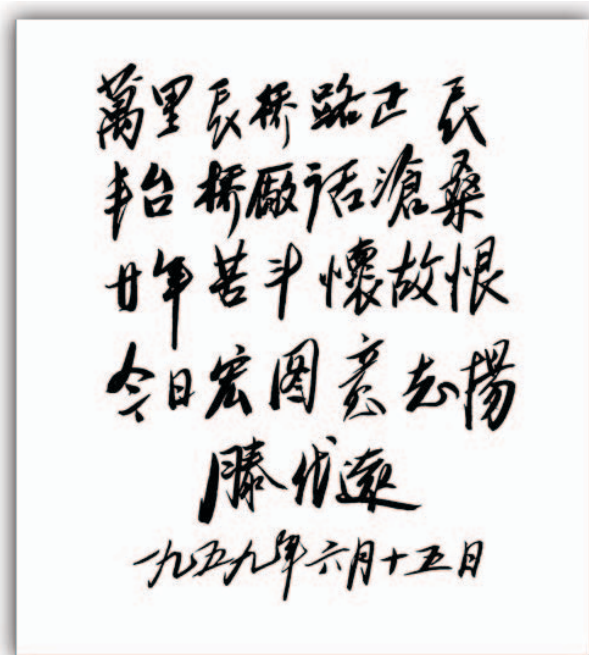 萬里长桥路正长
丰台桥廠话滄桑
廿年苦斗懷故恨
今日宏图意志揚
滕代遠
一九五九年六月十五日